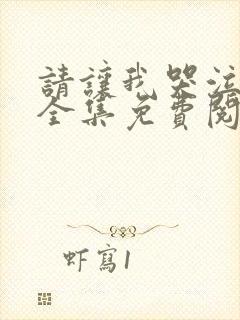 請讓我哭泣
全集免費閱
虾寫1